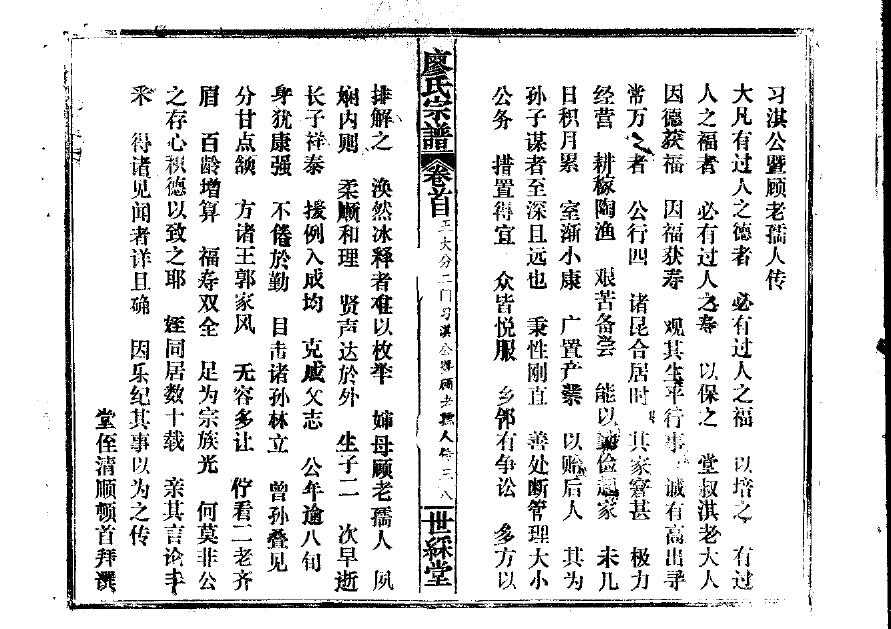 习淇公暨顾老孺人传
大凡有过人之德者 必有过人之福 以培之 有过
人之福者 必有过人之寿 以保之 堂叔淇老大人
因德获福 因福获寿 观其生平行事 诚有高出寻
常万之者 公行四 诸昆合居时 其家窘甚 极力
经营 耕稼陶渔 艰苦备尝 能以勤俭起家 未几
日积月累 室渐小康 广置产业 以贻后人 其为
孙子谋者至深且远也 秉性刚直 善处断管理大小
公务 措置得宜 众皆悦服 乡邻有争讼 多方以
廖氏宗谱 卷首 王大分二门习淇公暨顾老孺人传 世綵堂
排解之 涣然冰释者难以枚举 婶母顾老孺人 夙
娴内则 柔顺和理 贤声达於外 生子二 次早逝
长子祥泰 援例入成均 克成父志 公年逾八旬
身犹康强 不倦於勤 目击诸孙林立 曾孙叠见
分甘点颔 方诸王郭家风 无容多让 伫看二老齐
眉 百龄增算 福寿双全 足为宗族光 何莫非公
之存心积德以致之耶 侄同居数十载 亲其言论丰
采 得诸见闻者详且确 因乐纪其事以为之传
堂侄清顺顿首拜撰